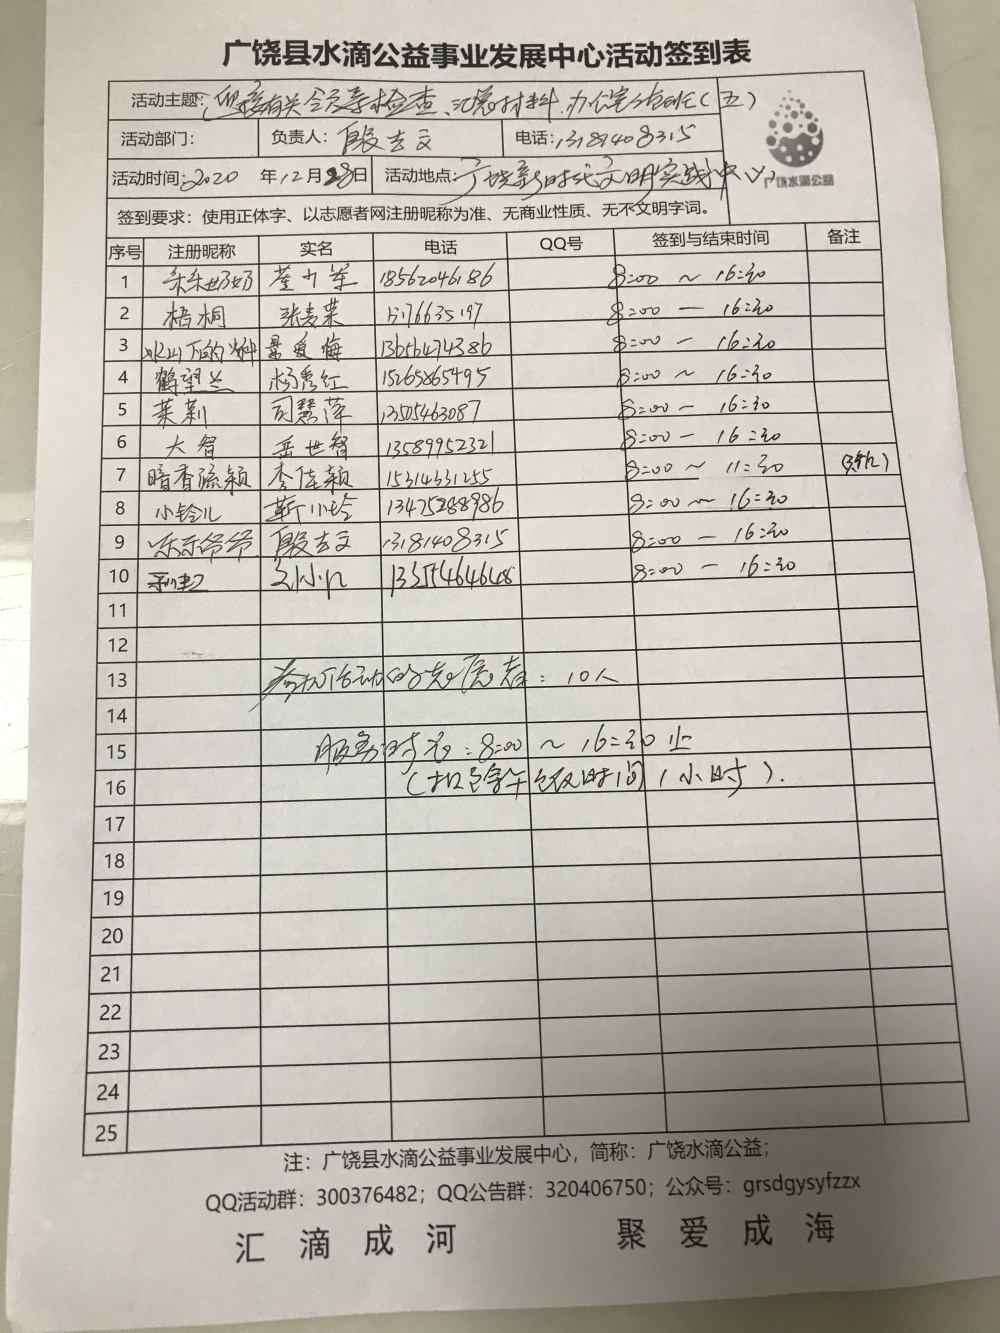 广饶县水滴公益事业发展中心活动签到表
活动主题: 迎接有关检查、汇总材料、办公室值班(五)
活动部门: 负责人: 殷玄文 电话: 13181408315
活动时间: 2020 年 12 月 28 日 活动地点: 广饶新时代文明实践中心
广饶水滴公益
签到要求：使用正体字、以志愿者网注册昵称为准、无商业性质、无不文明字词。
序号 注册昵称 实名 电话 QQ号 签到与结束时间 备注
1 乐乐奶奶 18562046186 8:00 ~ 16:30
2 梧桐 张麦荣 8:00 — 16:30
3 冰山下的火种 13656474386 8:00 — 16:30
4 鹤望兰 杨秀红 15265865495 8:00 ~ 16:30
5 茉莉 司慧萍 13505463087 8:00 — 16:30
6 大智 岳世智 13589952321 8:00 — 16:30
7 暗香疏颖 李佳颖 15314331255 8:00 ~ 11:30
8 小铃儿 靳小玲 13475288986 8:00 ~ 16:30
9 乐乐爷爷 殷玄文 13181408315 8:00 — 16:30
10 8:00 — 16:30
11
12
13 参加活动的志愿者: 10人
14
15 服务时间: 8:00 ~ 16:30 止
16 (扣除午饭时间1小时).
17
18
19
20
21
22
23
24
25
注：广饶县水滴公益事业发展中心，简称：广饶水滴公益；
QQ活动群：300376482；QQ公告群：320406750；公众号：grsdgysyfzzx
汇滴成河 聚爱成海